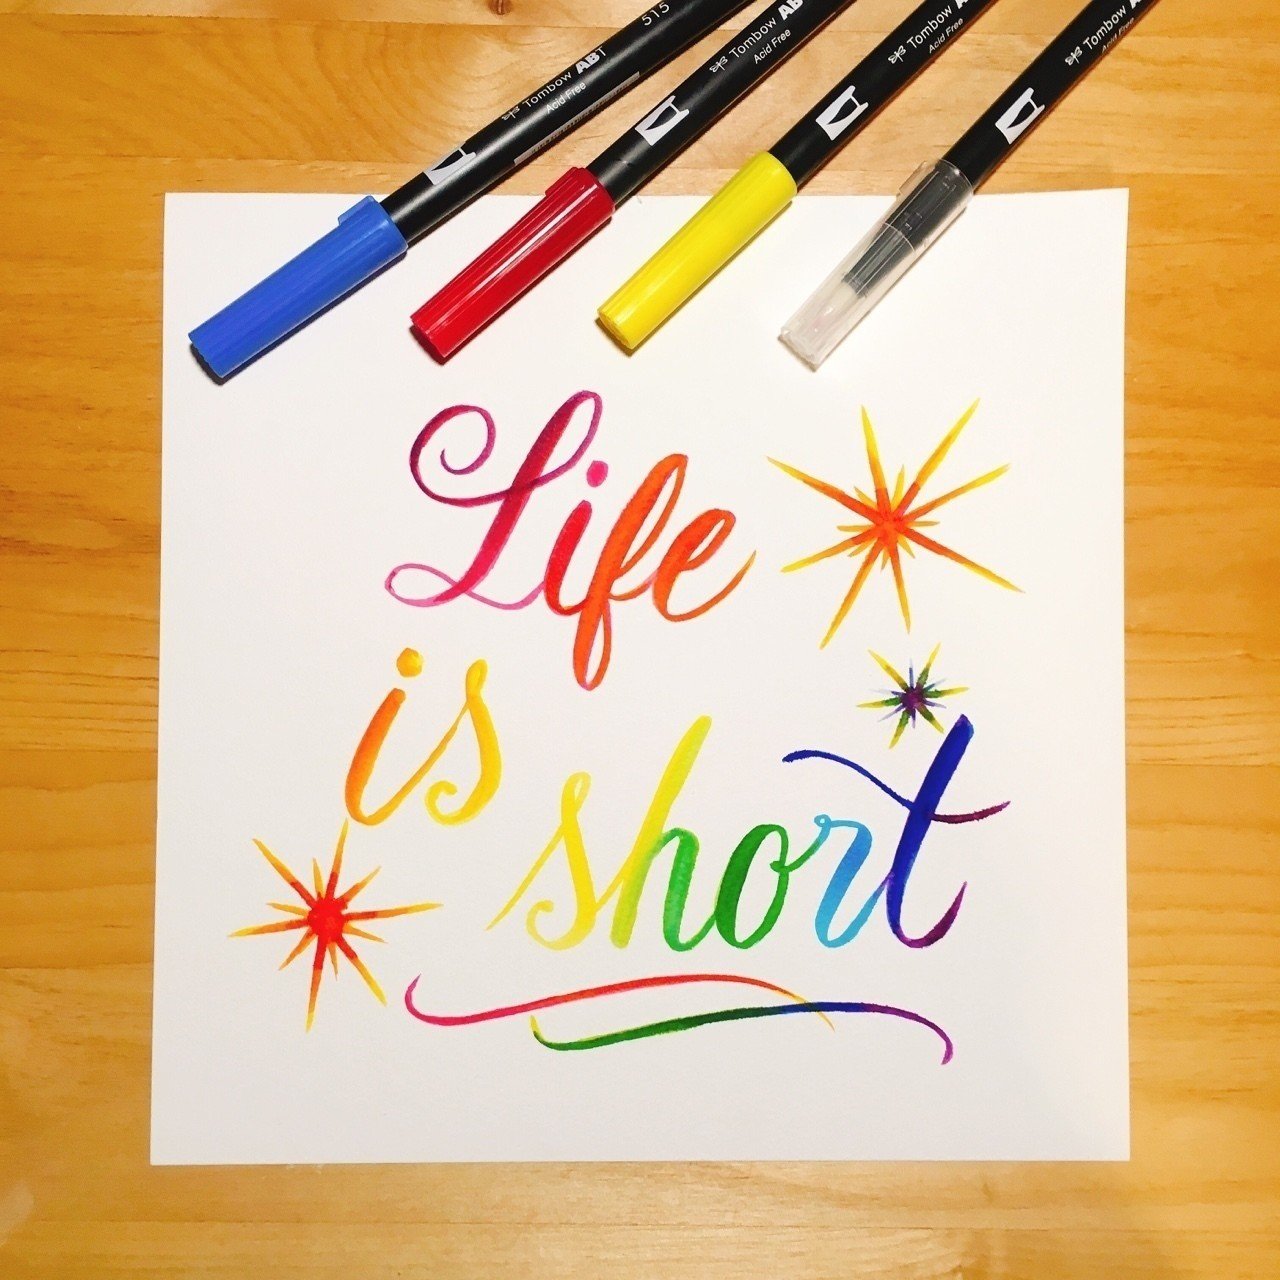 515
Tombow ABT
Acid Free
Tombow AB
Acid Free
Tombow
Acid Free
Tombow
Acid Free
Life
is
short